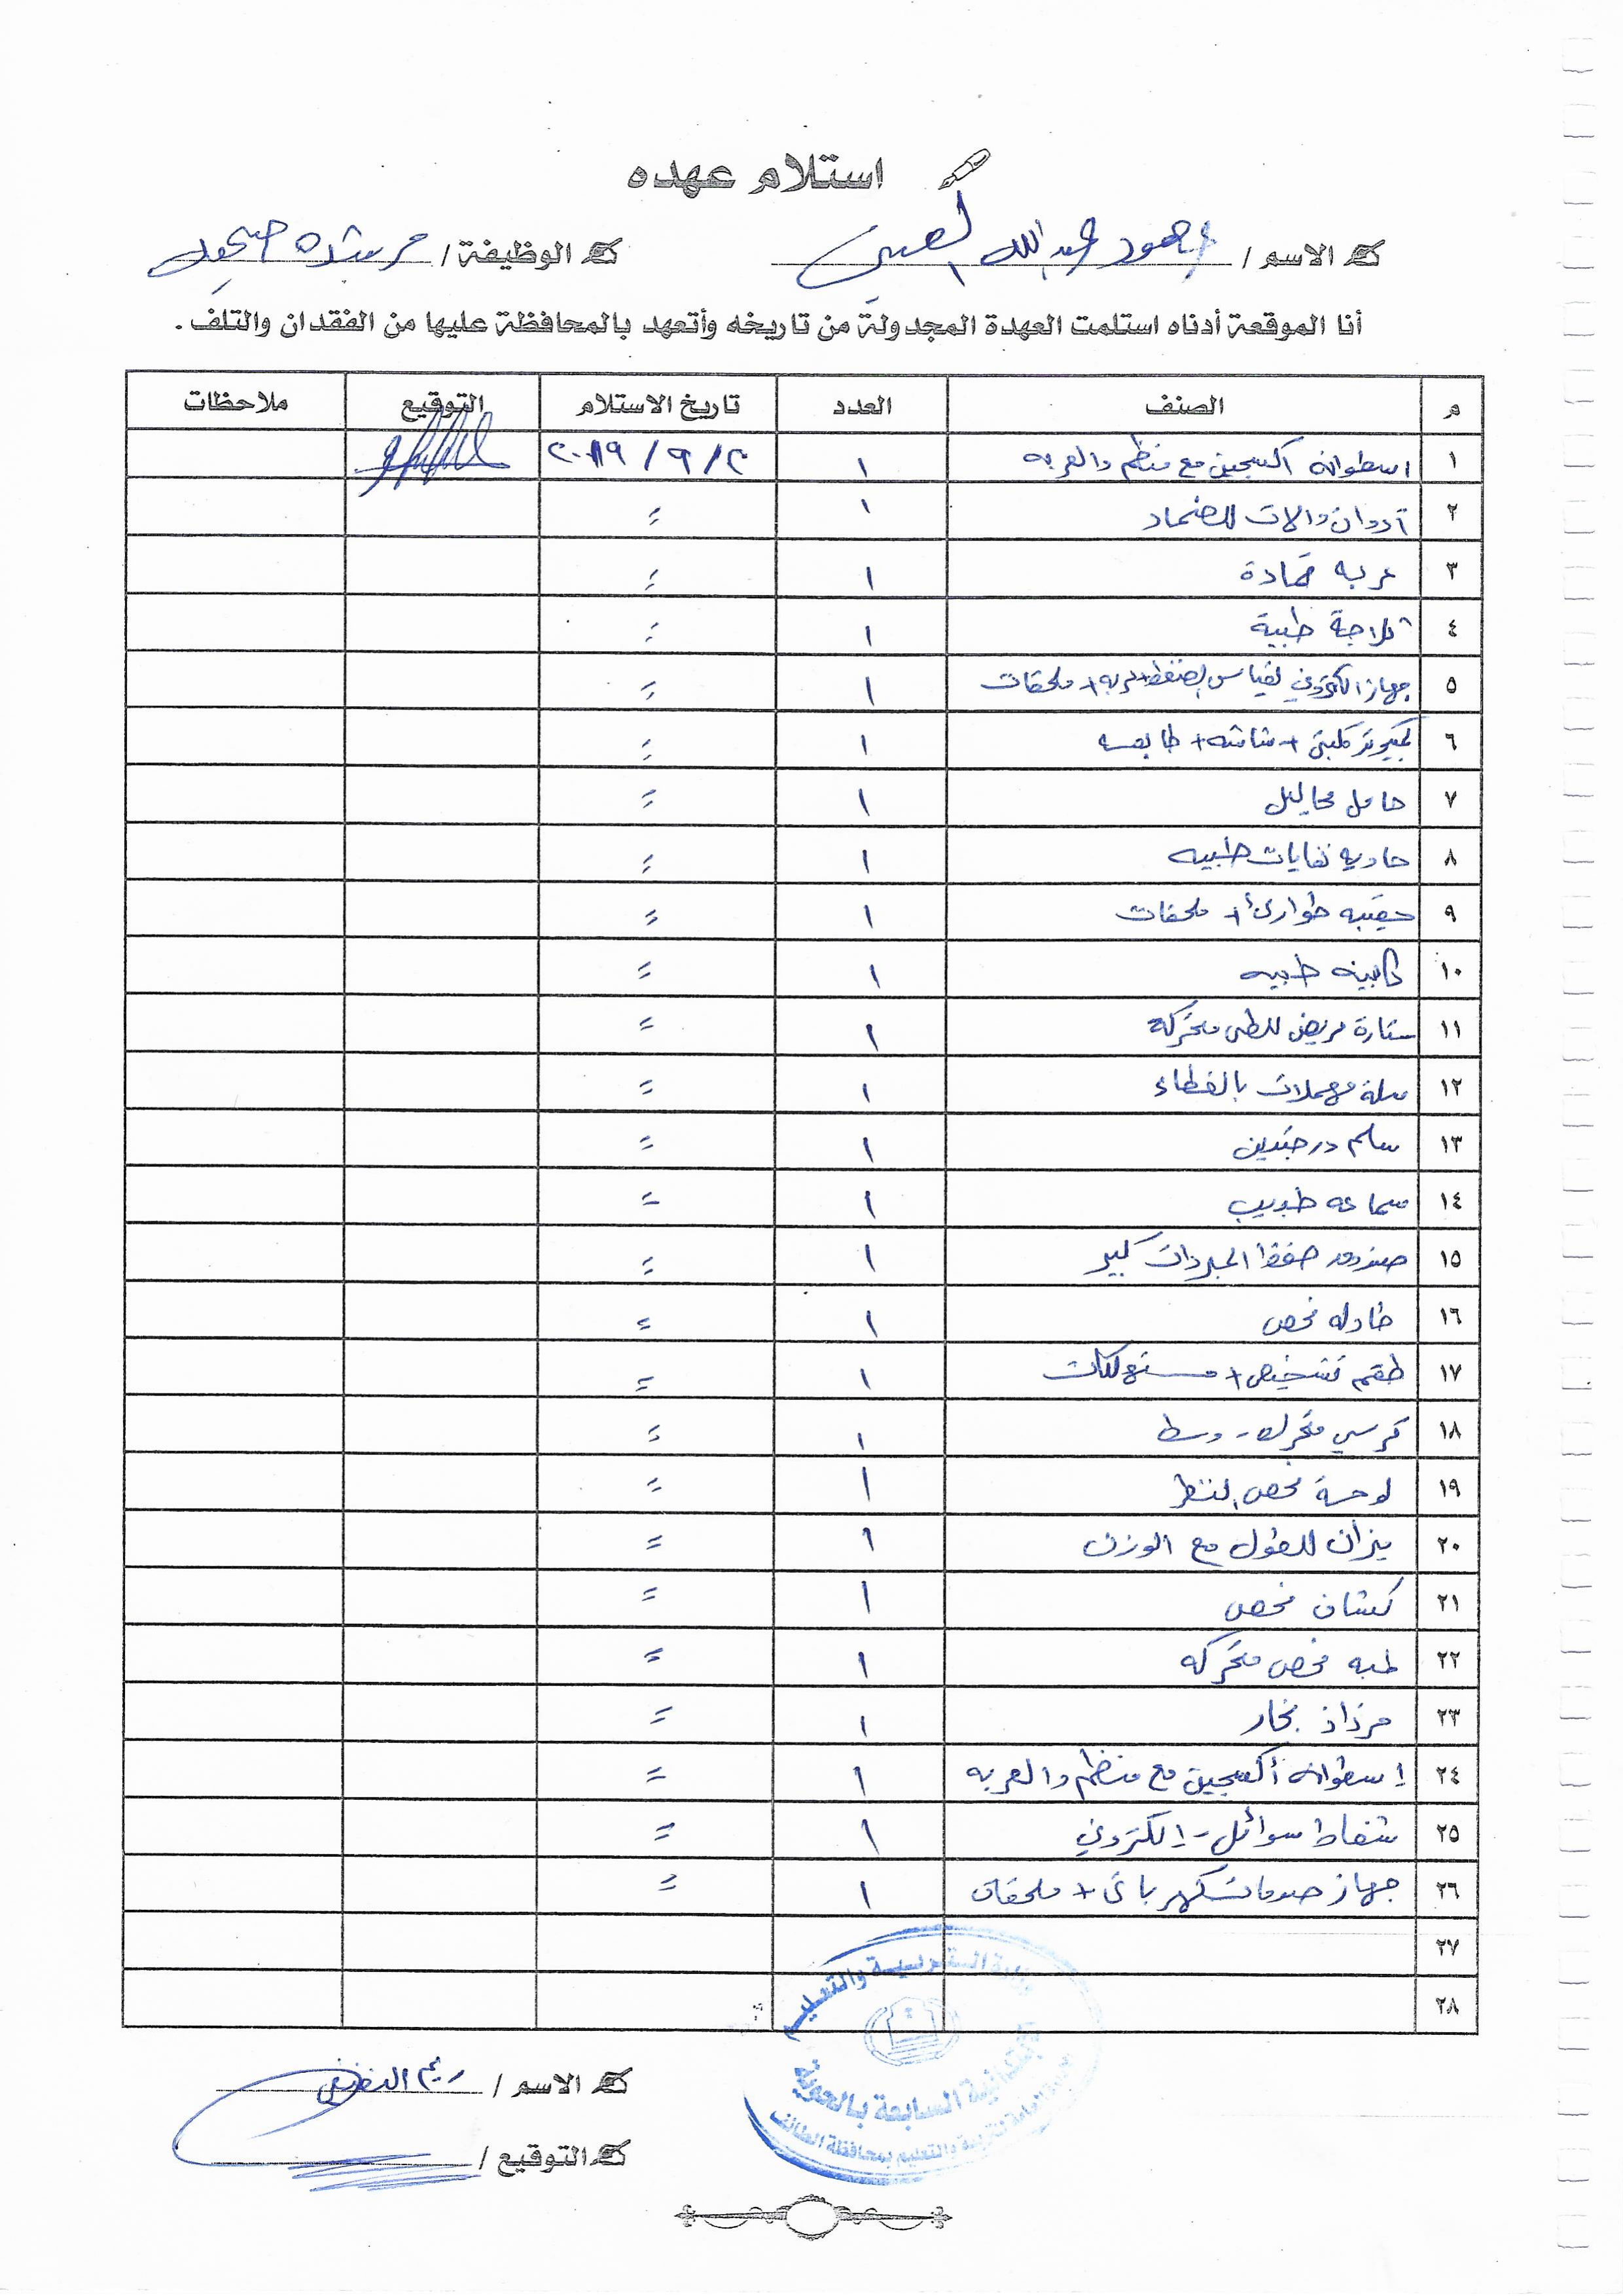 استلام عهده
الاسم / عبدالله
الوظيفة / مرشدة
أنا الموقعة أدناه استلمت العهدة المجدولة من تاريخه وأتعهد بالمحافظة عليها من الفقدان والتلف .
م الصنف العدد تاريخ الاستلام التوقيع ملاحظات
١ اسطوانه اكسجين مع منظم والعربه ١ ٢ / ٩ / ٢٠١٩
٢ أدوات والات للضماد ١ =
٣ عربه ضمادة ١ =
٤ ثلاجة طبية ١ =
٥ جهاز الكتروني لقياس الضغط + ملحقات ١ =
٦ كمبيوتر مكتبي + شاشه + طابعه ١ =
٧ حامل محاليل ١ =
٨ حاويه نفايات طبيه ١ =
٩ حقيبه طوارئ + ملحقات ١ =
١٠ كابينه طبيه ١ =
١١ ستارة مريض للطي متحركة ١ =
١٢ سلة مهملات بالغطاء ١ =
١٣ سلم درجتين ١ =
١٤ سماعه طبيب ١ =
١٥ صندوق حفظ المبردات كبير ١ =
١٦ طاوله فحص ١ =
١٧ طقم تشخيص + مستهلكات ١ =
١٨ كرسي متحرك - وسط ١ =
١٩ لوحة فحص النظر ١ =
٢٠ ميزان للطول مع الوزن ١ =
٢١ كشاف فحص ١ =
٢٢ لمبه فحص متحركه ١ =
٢٣ مرذاذ بخار ١ =
٢٤ إسطوانه أكسجين مع منظم والعربه ١ =
٢٥ شفاط سوائل - إلكتروني ١ =
٢٦ جهاز صدمات كهربائي + ملحقات ١ =
٢٧
٢٨
وزارة التربية والتعليم
السابعة بالحوية
للتربية والتعليم بمحافظة الطائف
الاسم / ريم
التوقيع /